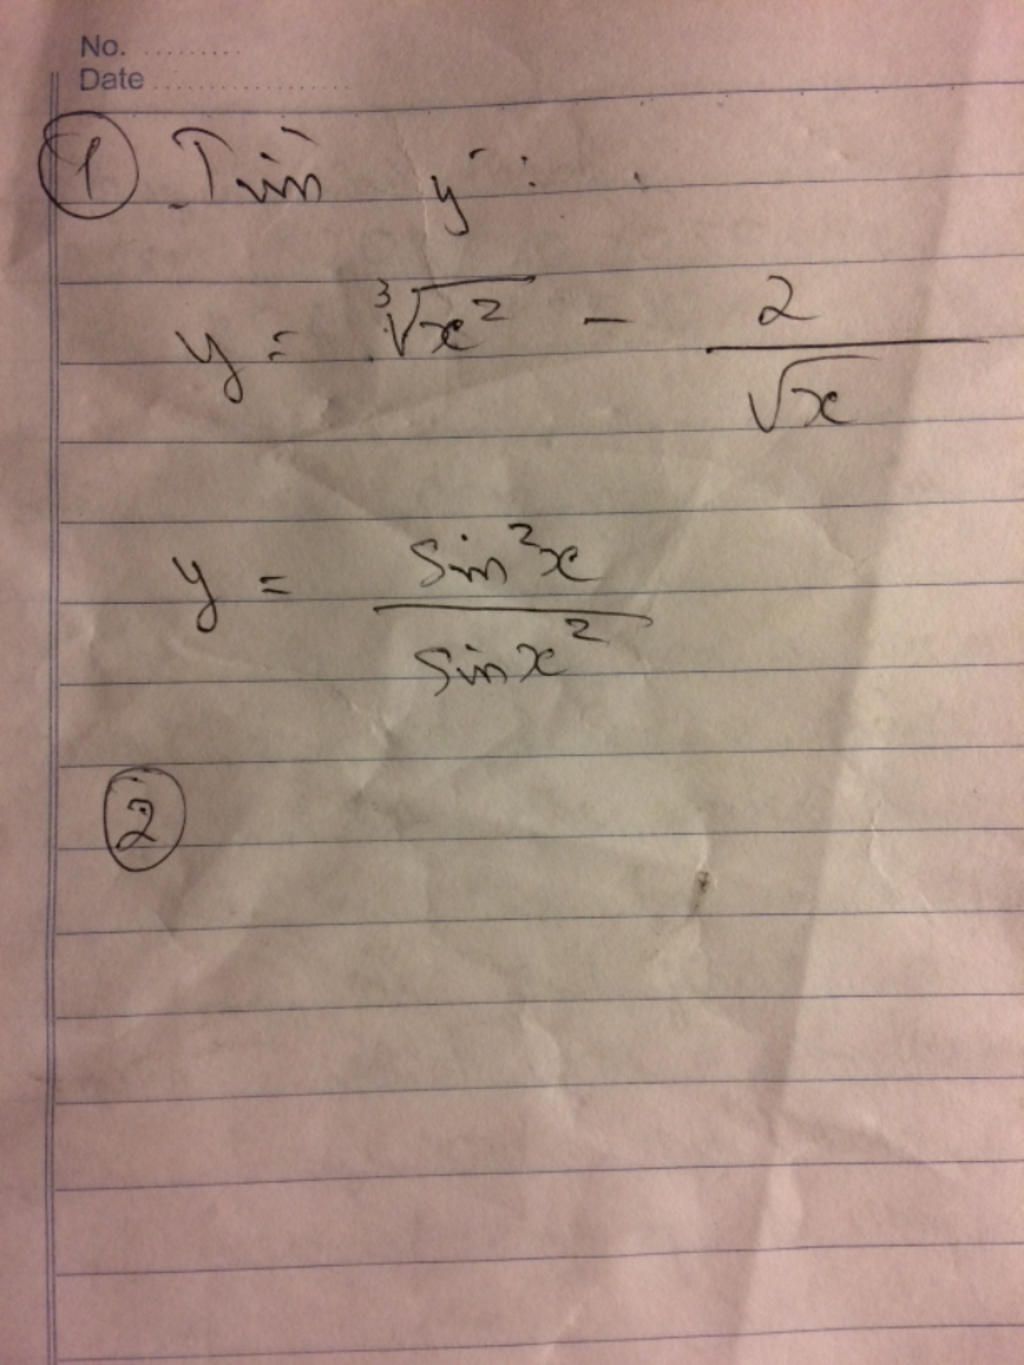 No. .........
Date .................
① Tìm y' :
y = ∛x² - 2/√x
y = sin²x / sin x²
②